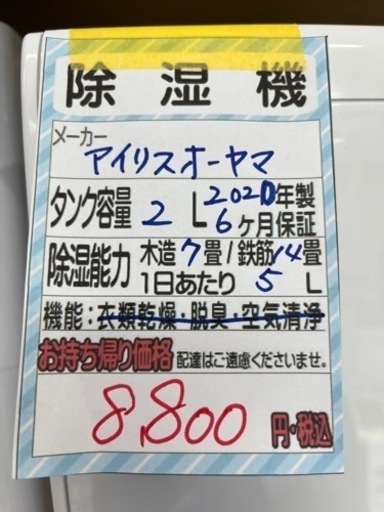 除湿機
メーカー
アイリスオーヤマ
タンク容量 2L 2020年製
6ヶ月保証
除湿能力 木造7畳/鉄筋14畳
1日あたり 5L
機能:衣類乾燥・脱臭・空気清浄
お持ち帰り価格 配達はご遠慮くださいませ。
8,800 円・税込